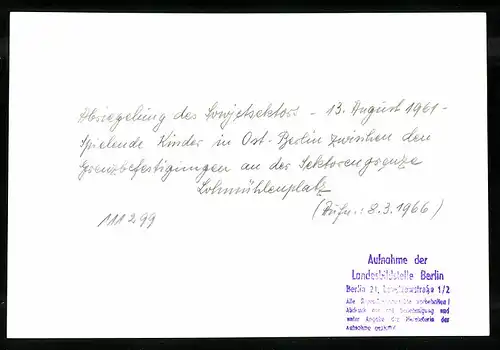 Abriegelung des Sowjetsektors - 13. August 1961 -
Spielende Kinder in Ost-Berlin zwischen den
Grenzbefestigungen an der Sektorengrenze
Lohmühlenplatz
(Aufn.: 8.3.1966)
111299
Aufnahme der
Landesbildstelle Berlin
Berlin 21, 1/2
Alle vorbehalten!
Abdruck nur mit Genehmigung und
unter Angabe der Herstellerin der
Aufnahme